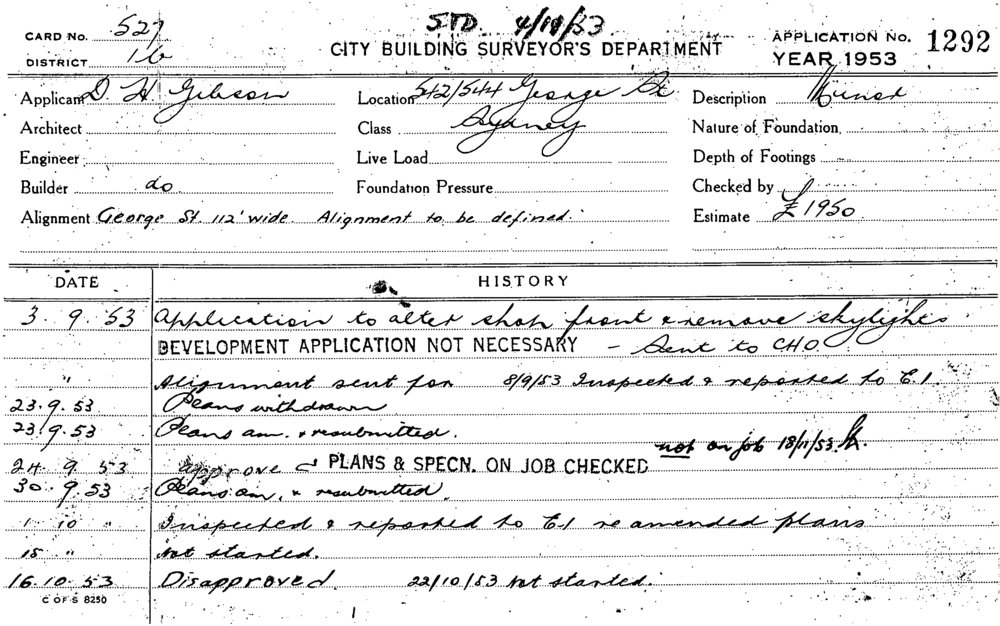 STD. 4/11/53
CARD No. 527
CITY BUILDING SURVEYOR'S DEPARTMENT
APPLICATION No. 1292
DISTRICT 16
YEAR 1953
Applicant D. H. Gibson
Location 542/544 George St
Description Minor
Architect
Class Sydney
Nature of Foundation
Engineer
Live Load
Depth of Footings
Builder do
Foundation Pressure
Checked by
Alignment George St. 112' wide. Alignment to be defined.
Estimate £1950
DATE
HISTORY
3. 9. 53 Application to alter shop front & remove skylights
DEVELOPMENT APPLICATION NOT NECESSARY - Sent to CHO.
" Alignment sent for 8/9/53 Inspected & reported to E.1.
23.9.53 Plans withdrawn
23.9.53 Plans am. & resubmitted.
not on job 18/11/53
24. 9. 53 approve PLANS & SPECN. ON JOB CHECKED
30. 9. 53 Plans am. & resubmitted.
1 10 " Inspected & reported to E.1 re amended plans
15 " Not started.
16.10.53 Disapproved. 22/10/53 Not started.
C OF S 8250